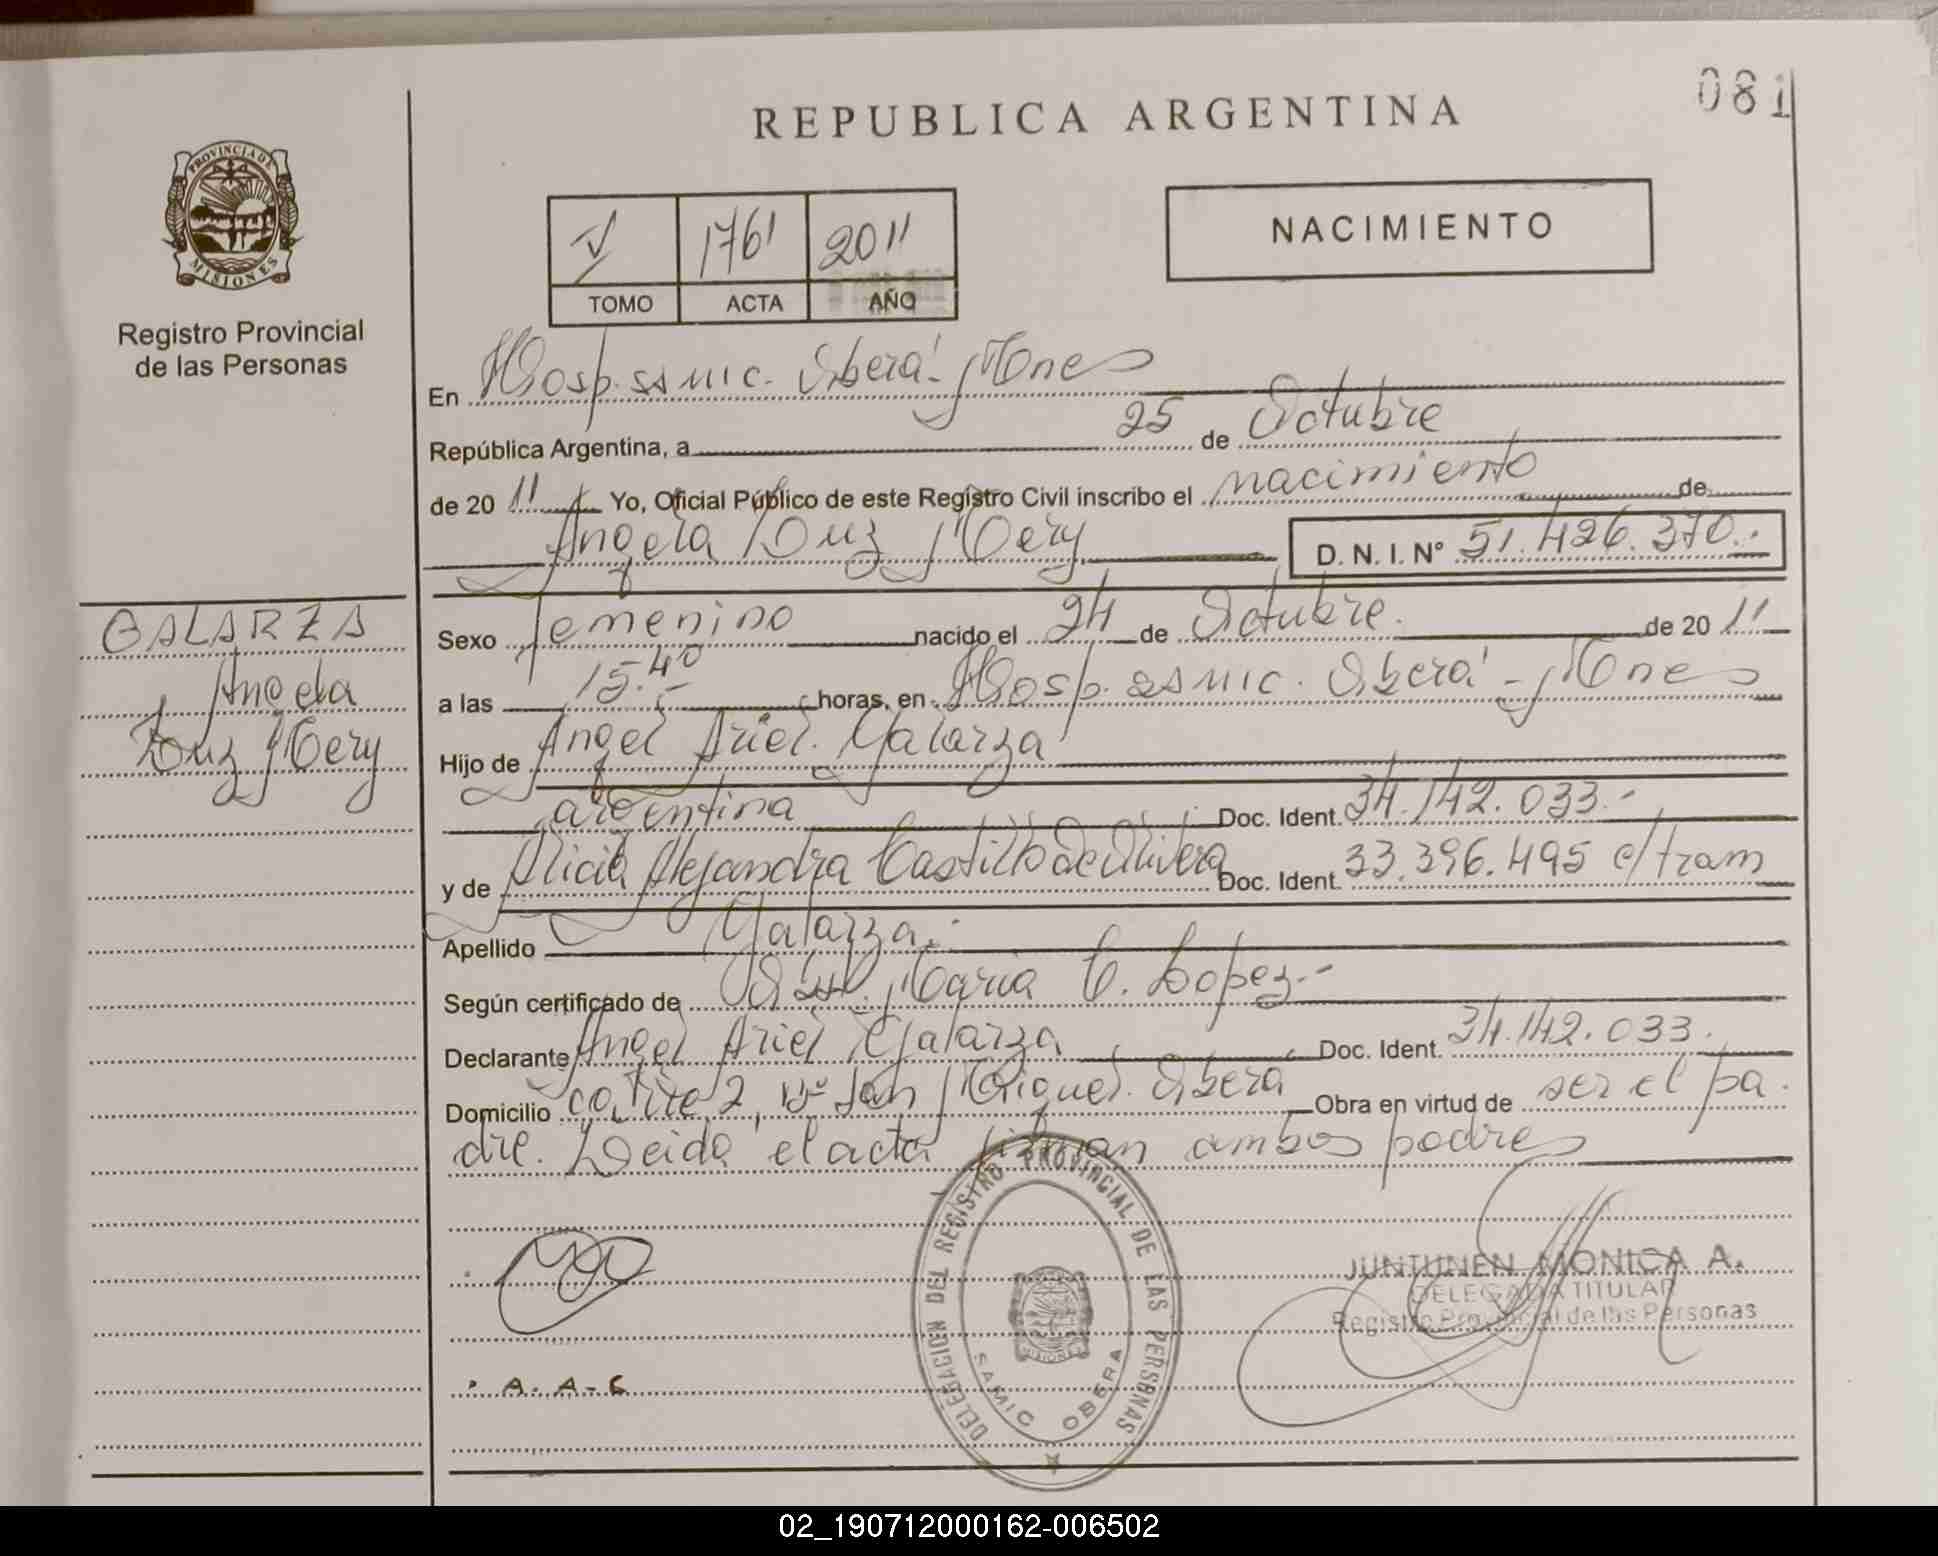 081
REPUBLICA ARGENTINA
PROVINCIA DE
MISIONES
Registro Provincial
de las Personas
V 1761 2011
TOMO ACTA AÑO
NACIMIENTO
En Hosp. SAMIC. Oberá - Mnes
República Argentina, a 25 de Octubre
de 20 11 Yo, Oficial Público de este Registro Civil inscribo el nacimiento de
Angela Luz Mery D. N. I. N° 51.426.370.-
GALARZA
Angela
Luz Mery
Sexo femenino nacido el 24 de Octubre. de 20 11
a las 15.40 horas, en Hosp. SAMIC. Oberá - Mnes
Hijo de Angel Ariel Galarza
argentina Doc. Ident. 34.142.033.-
y de Alicia Alejandra Castillo de Doc. Ident. 33.396.495 c/tram
Apellido Galarza.-
Según certificado de Obst. Maria C. Lopez.-
Declarante Angel Ariel Galarza Doc. Ident. 34.142.033.
Domicilio 2, Bº San Miguel. Oberá Obra en virtud de ser el pa
dre. Leida el acta firman ambos padres
DELEGACION DEL REGISTRO PROVINCIAL DE LAS PERSONAS
MISIONES
SAMIC OBERA
JUNTUNEN MONICA A.
DELEGADA TITULAR
Registro Provincial de las Personas
. A. A- G
02_190712000162-006502